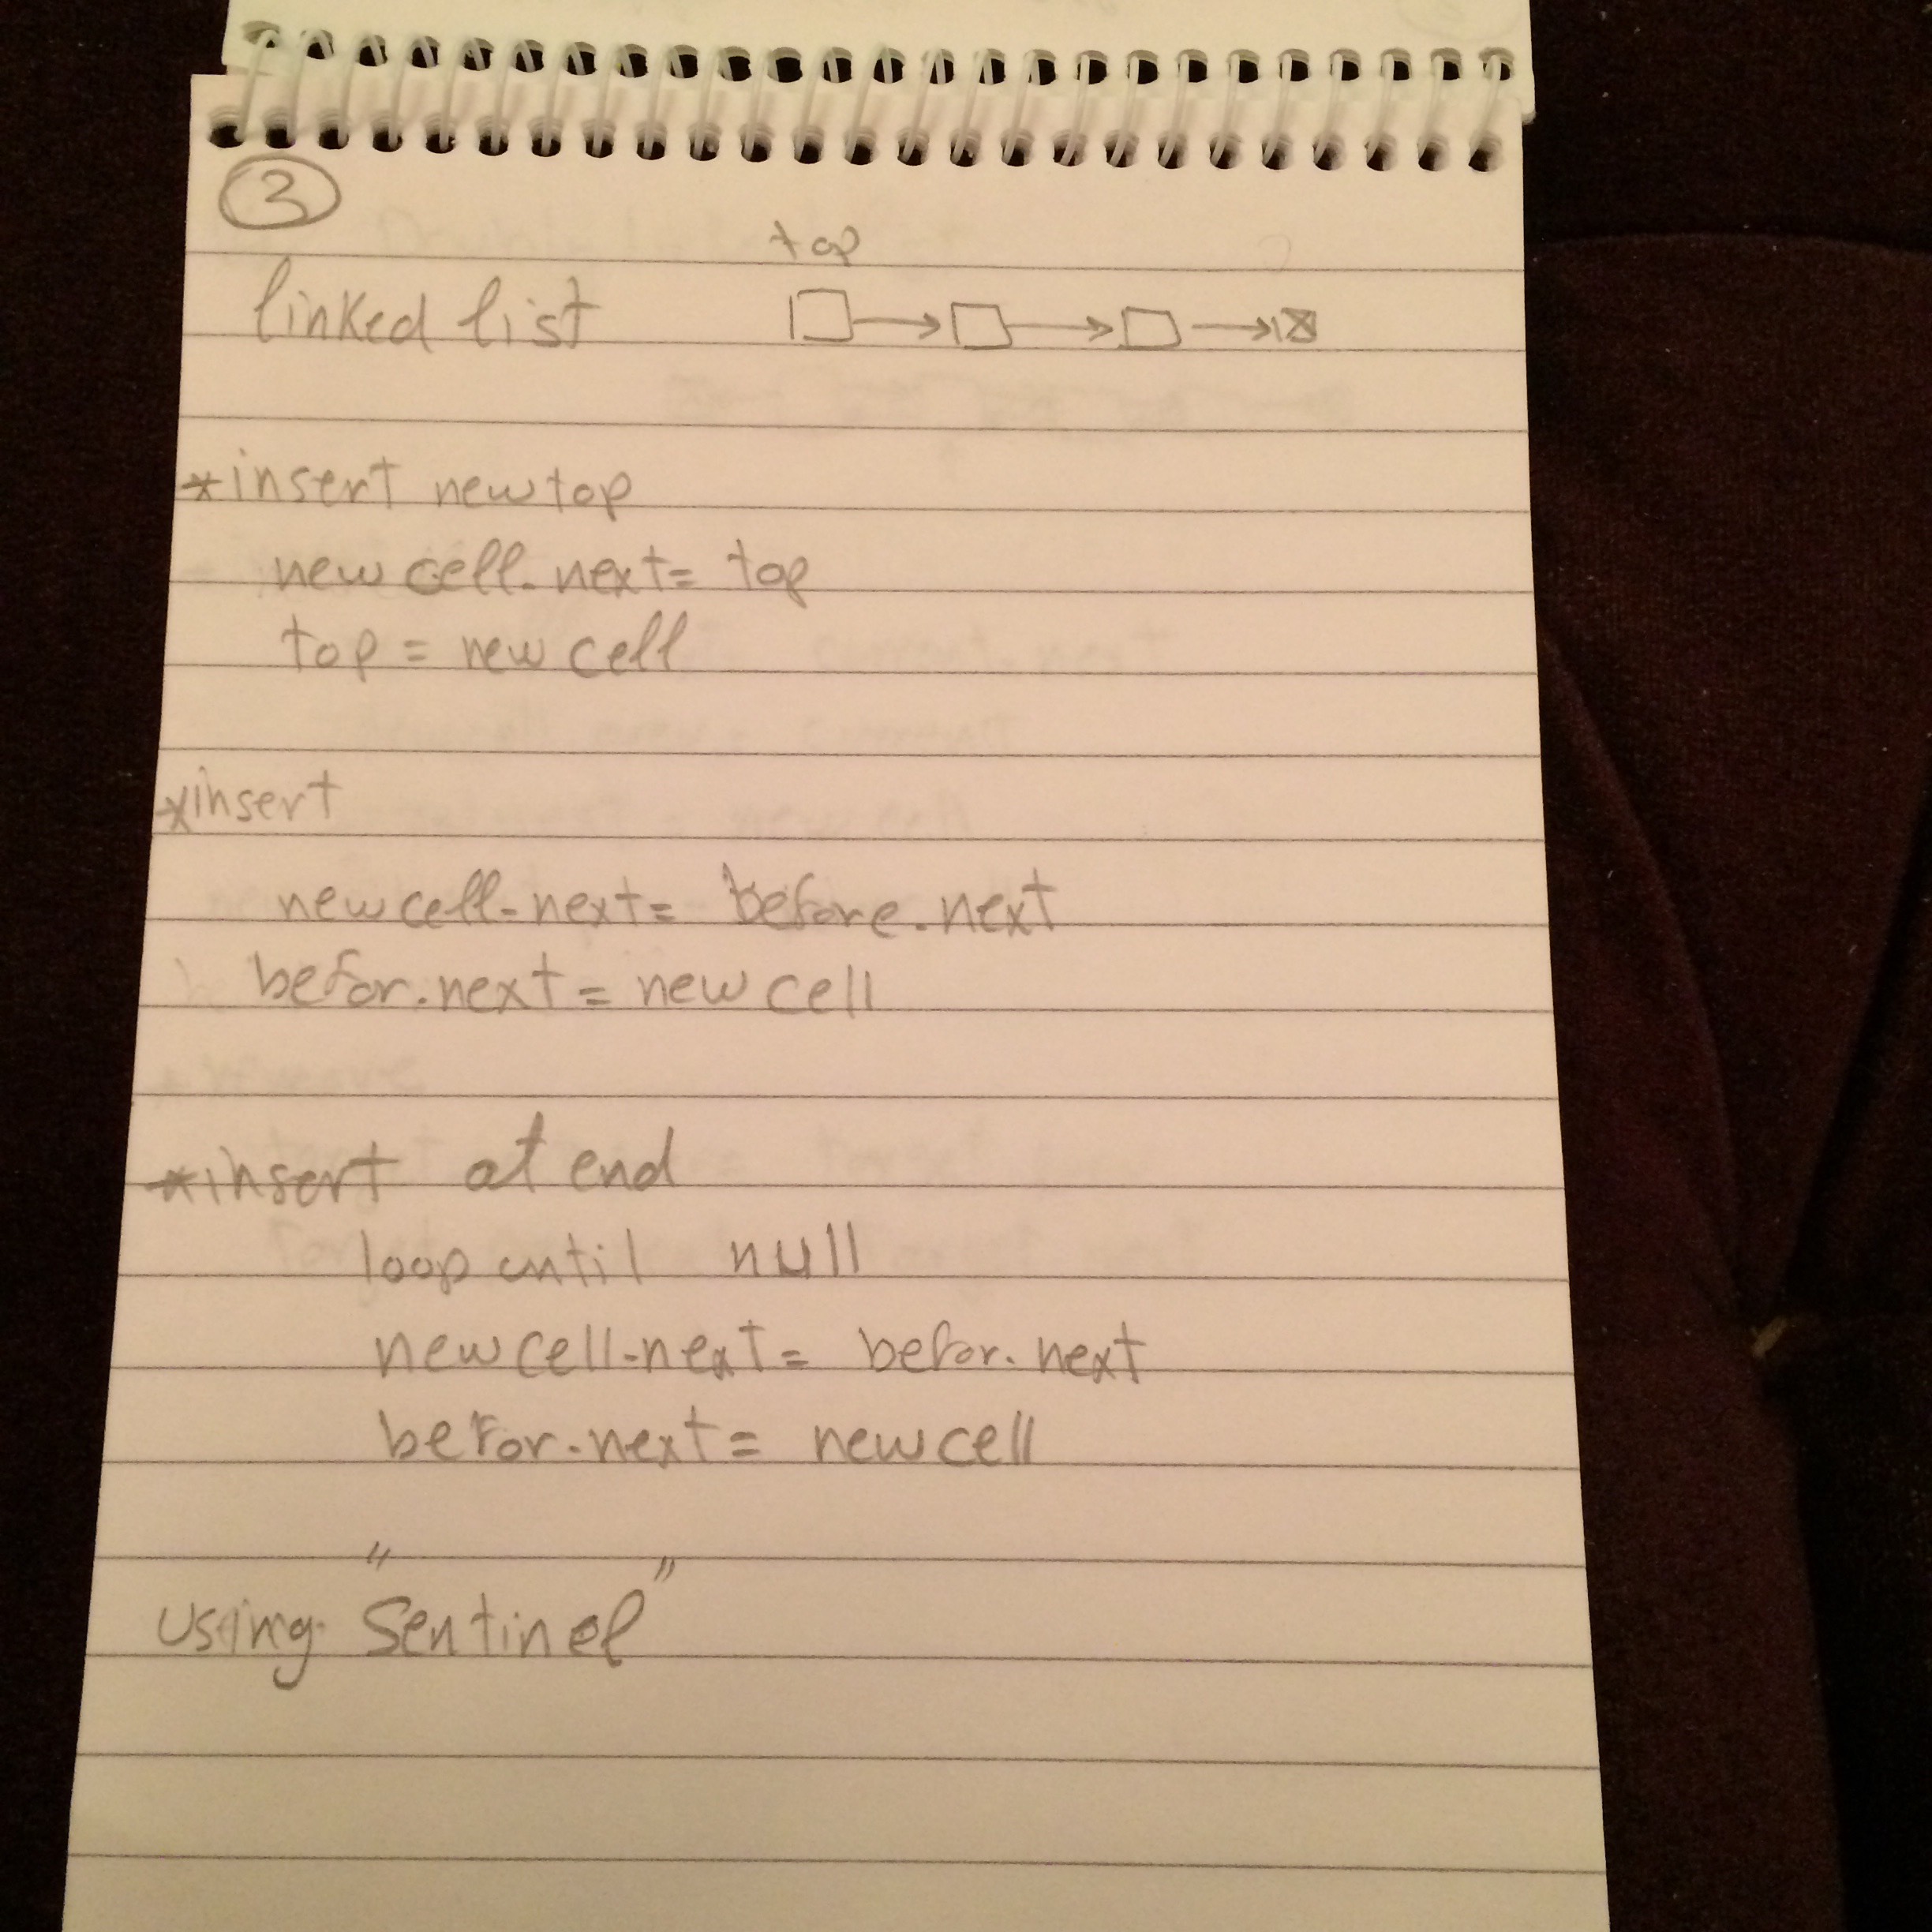 3
top
linked list
*insert new top
new cell.next = top
top = new cell
*insert
new cell.next = before.next
befor.next = new cell
*insert at end
loop until null
new cell.next = befor.next
befor.next = new cell
using "Sentinel"